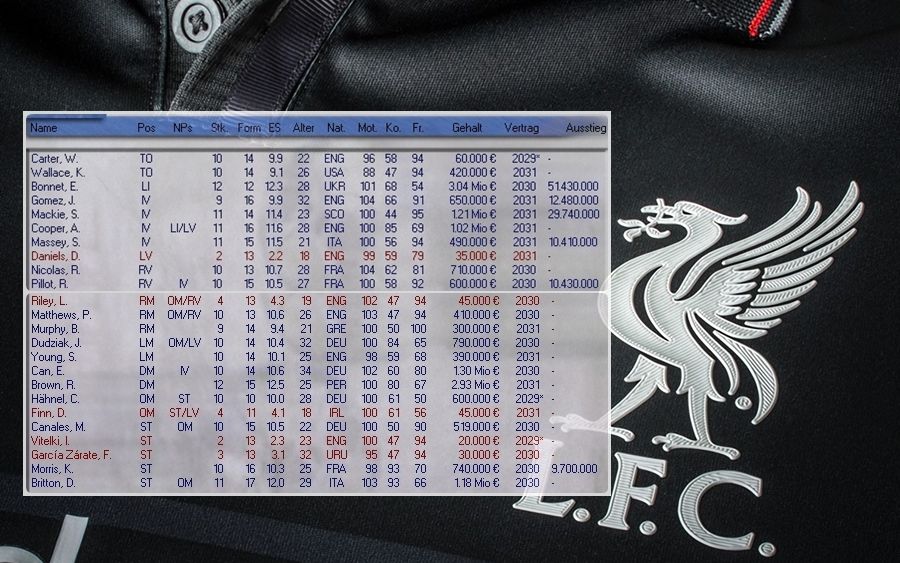 Name Pos NPs Stk. Form ES Alter Nat. Mot. Ko. Fr. Gehalt Vertrag Ausstieg
Carter, W. TO 10 14 9.9 22 ENG 96 58 94 60.000 € 2029* -
Wallace, K. TO 10 14 9.1 26 USA 88 47 94 420.000 € 2031 -
Bonnet, E. LI 12 12 12.3 28 UKR 101 68 54 3.04 Mio € 2030 51.430.000
Gomez, J. IV 9 16 9.9 32 ENG 104 66 91 650.000 € 2031 12.480.000
Mackie, S. IV 11 14 11.4 23 SCO 100 44 95 1.21 Mio € 2031 29.740.000
Cooper, A. IV LI/LV 11 16 11.6 28 ENG 100 85 69 1.02 Mio € 2031 -
Massey, S. IV 11 15 11.5 21 ITA 100 56 94 490.000 € 2031 10.410.000
Daniels, D. LV 2 13 2.2 18 ENG 99 59 79 35.000 € 2031 -
Nicolas, R. RV 10 13 10.7 28 FRA 104 62 81 710.000 € 2030 -
Pillot, R. RV IV 10 15 10.5 27 FRA 100 58 92 600.000 € 2031 10.430.000
Riley, L. RM OM/RV 4 13 4.3 19 ENG 102 47 94 45.000 € 2030 -
Matthews, P. RM OM/RV 10 13 10.6 26 ENG 103 47 94 410.000 € 2030 -
Murphy, B. RM 9 14 9.4 21 GRE 100 50 100 300.000 € 2031 -
Dudziak, J. LM OM/LV 10 14 10.4 32 DEU 100 84 65 790.000 € 2030 -
Young, S. LM 10 14 10.1 25 ENG 98 59 68 390.000 € 2031 -
Can, E. DM IV 10 14 10.6 34 DEU 102 60 80 1.30 Mio € 2030 -
Brown, R. DM 12 15 12.5 25 PER 100 80 67 2.93 Mio € 2031 -
Hähnel, C. OM ST 10 10 10.0 28 DEU 100 61 50 600.000 € 2029* -
Finn, D. OM ST/LV 4 11 4.1 18 IRL 100 61 56 45.000 € 2031 -
Canales, M. ST OM 10 15 10.5 22 DEU 100 50 90 519.000 € 2030 -
Vitelki, I. ST 2 13 2.3 23 ENG 100 47 94 20.000 € 2029* -
García Zárate, F. ST 3 13 3.1 32 URU 95 47 94 30.000 € 2030 -
Morris, K. ST 10 16 10.3 25 FRA 98 93 70 740.000 € 2030 9.700.000
Britton, D. ST OM 11 17 12.0 29 ITA 103 93 66 1.18 Mio € 2030 -
L.F.C.
®